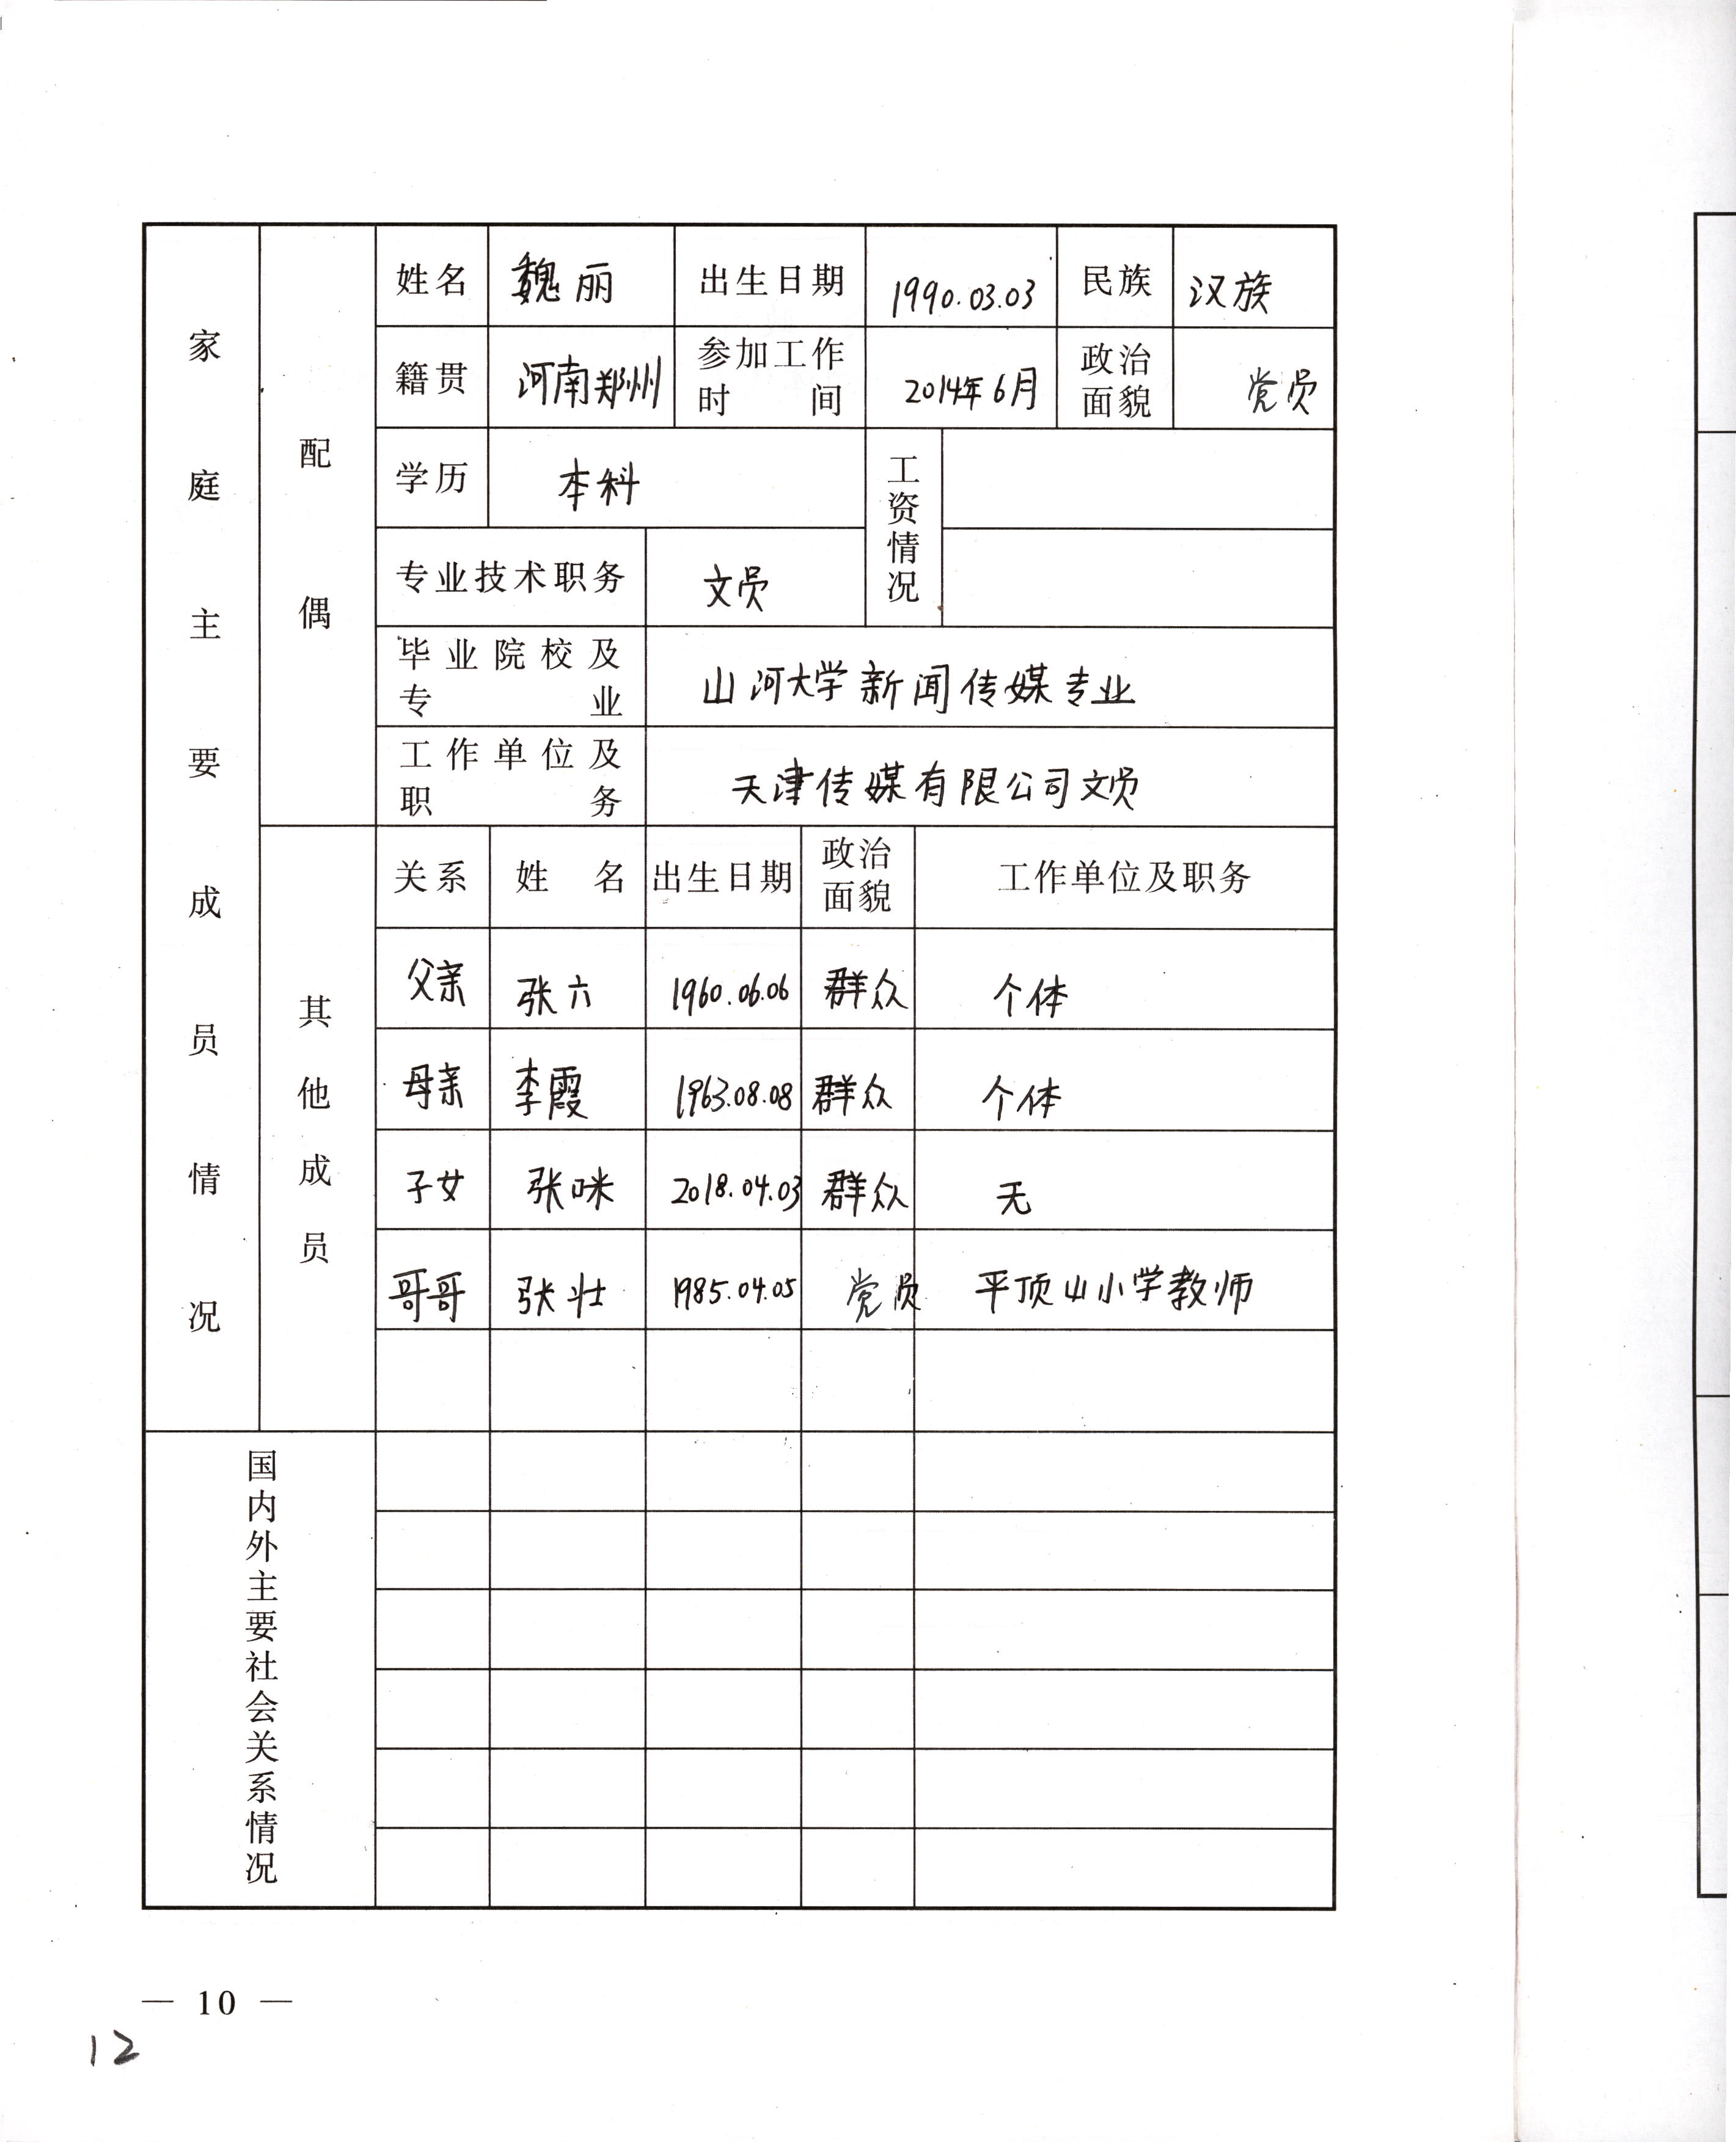 家庭主要成员情况
配偶
姓名 魏丽 出生日期 1990.03.03 民族 汉族
籍贯 河南郑州 参加工作时间 2014年6月 政治面貌 党员
学历 本科 工资情况
专业技术职务 文员
毕业院校及专业 山河大学新闻传媒专业
工作单位及职务 天津传媒有限公司文员
其他成员
关系 姓名 出生日期 政治面貌 工作单位及职务
父亲 张六 1960.06.06 群众 个体
母亲 李霞 1963.08.08 群众 个体
子女 张咪 2018.04.03 群众 无
哥哥 张壮 1985.04.05 党员 平顶山小学教师
国内外主要社会关系情况
— 10 —
12